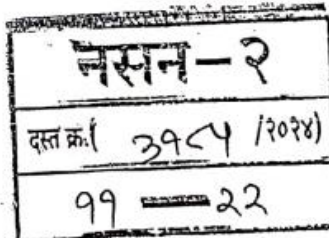 नसन - २
दस्त क्र.( ३१८५ /२०२४)
११ — २२